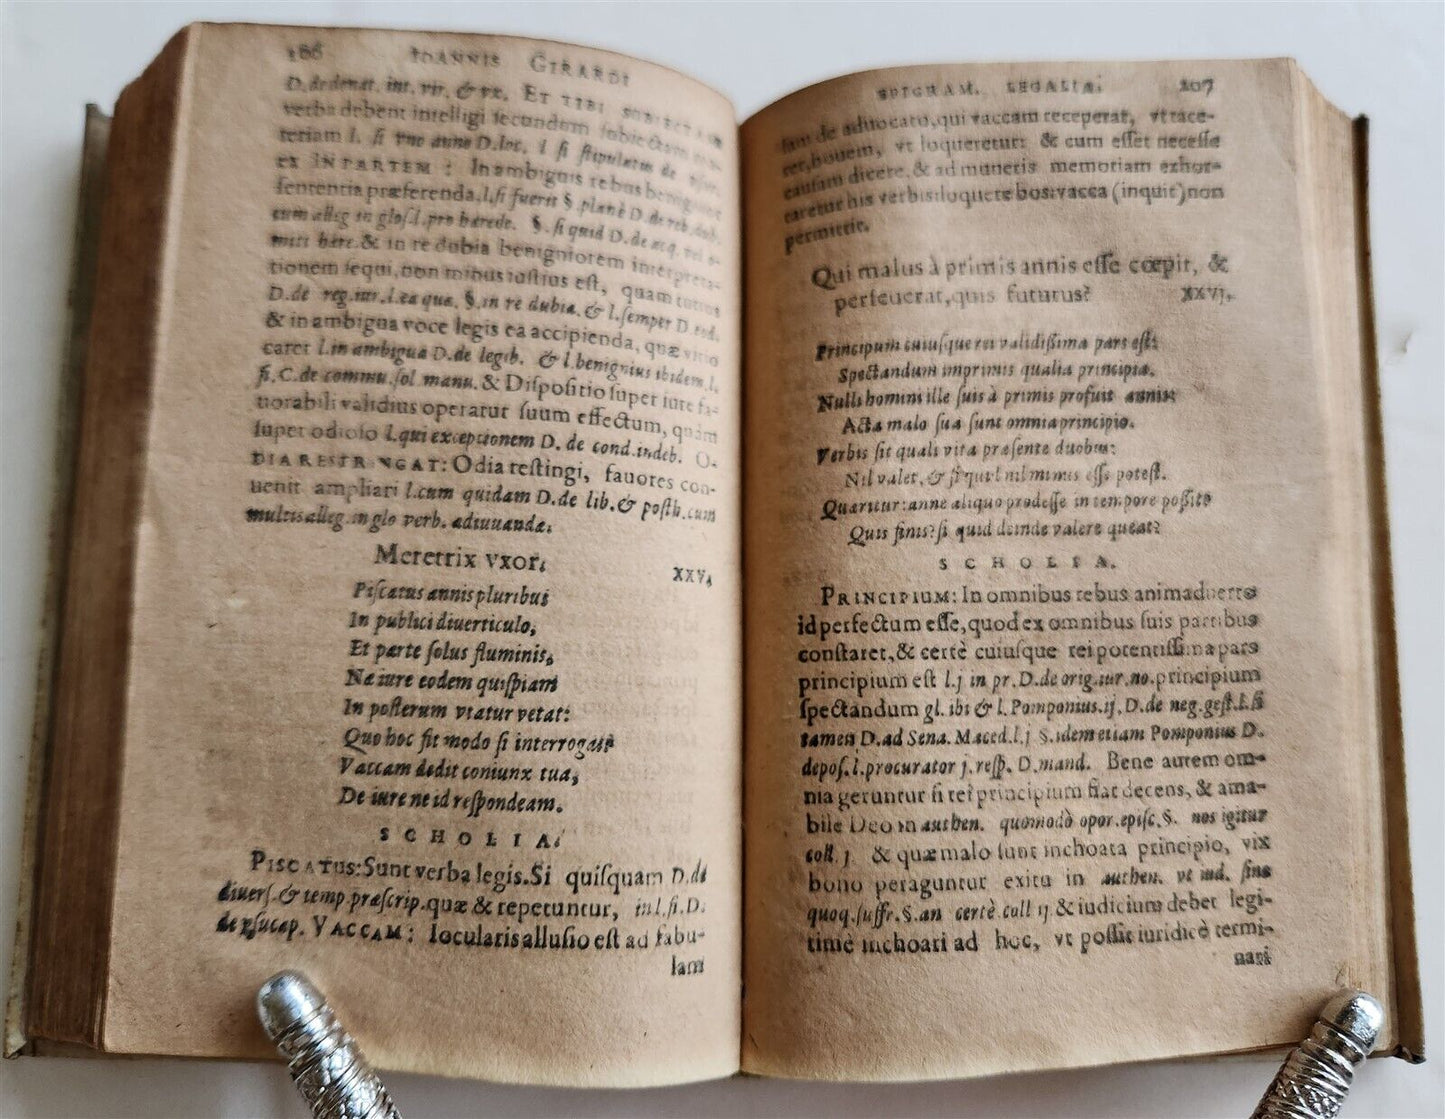 186 IOANNIS GIRARDI
D. de donat. int. vir. & vx. ET TIBI SVBIECTAM
verba debent intelligi secundum subiectam
teriam l. si vno anno D. loc. l si stipulatus de vsur.
ex IN PARTEM: In ambiguis rebus benignior
sententia præferenda, l. si fuerit §. planè D. de reb. dub.
cum alleg in glos. l. pro herede. §. si quid D. de acq. vel o-
mitt here. & in re dubia benigniorem interpreta-
tionem sequi, non minus iustius est, quam tutius
D. de reg. iur. l. ea quæ. §. in re dubia. & l. semper D. eod.
& in ambigua voce legis ea accipienda, quæ vitio
caret l. in ambigua D. de legib. & l. benignius ibidem. l.
fi. C. de commu. sol manu. & Dispositio super iure fa-
uorabili validius operatur suum effectum, quàm
super odioso l. qui exceptionem D. de cond. indeb. O-
DIA RESTRINGAT: Odia restingi, fauores con-
uenit ampliari l. cum quidam D. de lib. & posth. cum
multis alleg. in glo verb. adiuuanda.
Meretrix vxor. XXV.
Piscatus annis pluribus
In publici diuerticulo,
Et parte solus fluminis,
Næ iure eodem quispiam
In posterum vtatur vetat:
Quo hoc fit modo si interrogate
Vaccam dedit coniunx tua,
De iure ne id respondeam.
SCHOLIA.
PISCATUS: Sunt verba legis. Si quisquam D. de
diuers. & temp præscrip. quæ & repetuntur, in l. fi. D.
de vsucap. VACCAM: Iocularis allusio est ad fabu-
lam
EPIGRAM. LEGALIA. 207
lam de aduocato, qui vaccam receperat, vt tace-
ret, bouem, vt loqueretur: & cum esset necesse
causam dicere, & ad muneris memoriam exhor-
taretur his verbis: loquere bos: vacca (inquit) non
permittit.
Qui malus à primis annis esse cœpit, &
perseuerat, quis futurus? XXVI.
Principium cuiusque rei validissima pars est:
Spectandum imprimis qualia principia.
Nulli homini ille suis à primis profuit annis:
Acta malo sua sunt omnia principio.
Verbis sit quali vita præsente duobus:
Nil valet, & si quil nil minus esse potest.
Quæritur: anne aliquo prodesse in tempore possit?
Quis finis? si quid deinde valere queat?
SCHOLIA.
PRINCIPIUM: In omnibus rebus animaduerto
id perfectum esse, quod ex omnibus suis partibus
constaret, & certè cuiusque rei potentissima pars
principium est l. j in pr. D. de orig. iur. no. principium
spectandum gl. ibi & l. Pomponius. ij. D. de neg. gest. l. si
tamen D. ad Sena. Maced. l. j §. idem etiam Pomponius D.
depos. l. procurator j. resp. D. mand. Bene autem om-
nia geruntur si rei principium fiat decens, & ama-
bile Deo in authen. quomodò opor. episc. §. nos igitur
coll. j. & quæ malo sunt inchoata principio, vix
bono peraguntur exitu in authen. vt iud. sine
quoq. suffr. §. an certè coll ij & iudicium debet legi-
timè inchoari ad hoc, vt possit iuridicè termi-
nari